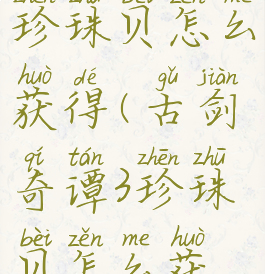 珍珠贝怎么
huò dé gǔ jiàn
获得(古剑
qí tán zhēn zhū
奇谭3珍珠
bèi zěn me huò
贝怎么获